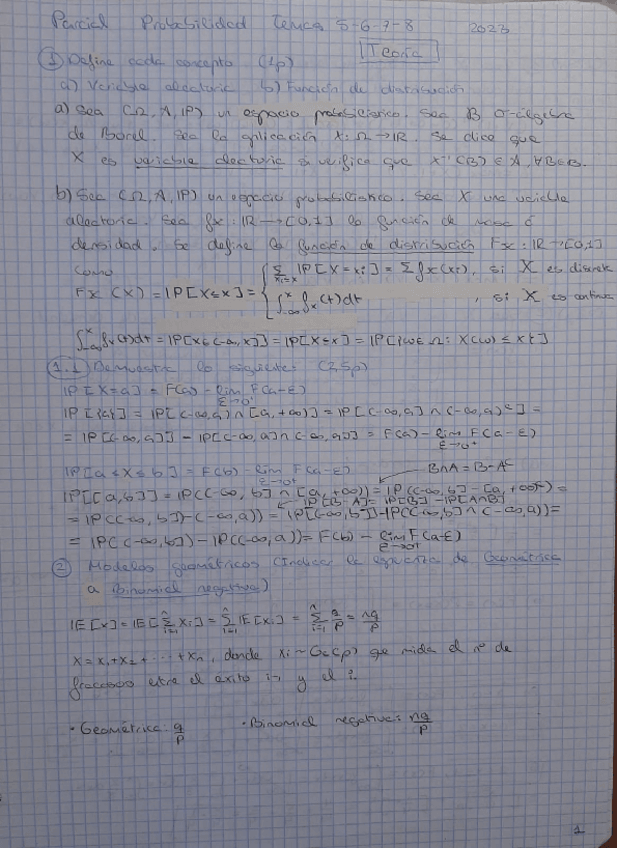 Parcial Probabilidad Temas 5-6-7-8 2023
Teoría
① Define cada concepto (1p)
a) Variable aleatoria b) Función de distribución
a) Sea (Ω, A, IP) un espacio probabilístico. Sea B σ-álgebra
de Borel. Sea la aplicación X: Ω → IR. Se dice que
X es variable aleatoria si verifica que X⁻¹(B) ∈ A, ∀B∈B.
b) Sea (Ω, A, IP) un espacio probabilístico. Sea X una variable
aleatoria. Sea fx: IR → [0,1] la función de masa ó
densidad. Se define la función de distribución Fx: IR → [0,1]
como
Fx(x) = IP[X≤x] = { Σ xi≤x IP[X=xi] = Σ fx(xi), si X es discreta
∫₋∞ˣ fx(t)dt, si X es continua
∫₋∞ˣ fx(t)dt = IP[X∈(-∞,x]] = IP[X≤x] = IP[{ω∈Ω: X(ω) ≤ x}]
1.1) Demuestra lo siguiente: (2,5p)
IP[X=a] = F(a) - lim ε→0⁺ F(a-ε)
IP[{a}] = IP[(-∞,a] ∩ [a,+∞)] = IP[(-∞,a] ∩ (-∞,a)ᶜ] =
= IP[(-∞,a]] - IP[(-∞,a] ∩ (-∞,a)] = F(a) - lim ε→0⁺ F(a-ε)
IP[a≤X≤b] = F(b) - lim ε→0⁺ F(a-ε) B∩A = B-Aᶜ
IP[[a,b]] = IP((-∞,b] ∩ [a,+∞)) = IP((-∞,b] - [a,+∞)ᶜ) =
IP[B-A] = IP[B] - IP[A∩B]
= IP((-∞,b]-(-∞,a)) = IP[(-∞,b]]-IP((-∞,b] ∩ (-∞,a)) =
= IP((-∞,b]) - IP((-∞,a)) = F(b) - lim ε→0⁺ F(a-ε)
② Modelos geométricos (Indica la esperanza de Geométrica
a Binomial negativa)
IE[X] = IE[Σ i=1 n Xi] = Σ i=1 n IE[Xi] = Σ i=1 n q/p = nq/p
X = X₁+X₂+ ··· +Xn, donde Xi ~ Ge(p) que mida el nº de
fracasos entre el éxito i-1 y el i.
• Geométrica: q/p • Binomial negativa: nq/p
1